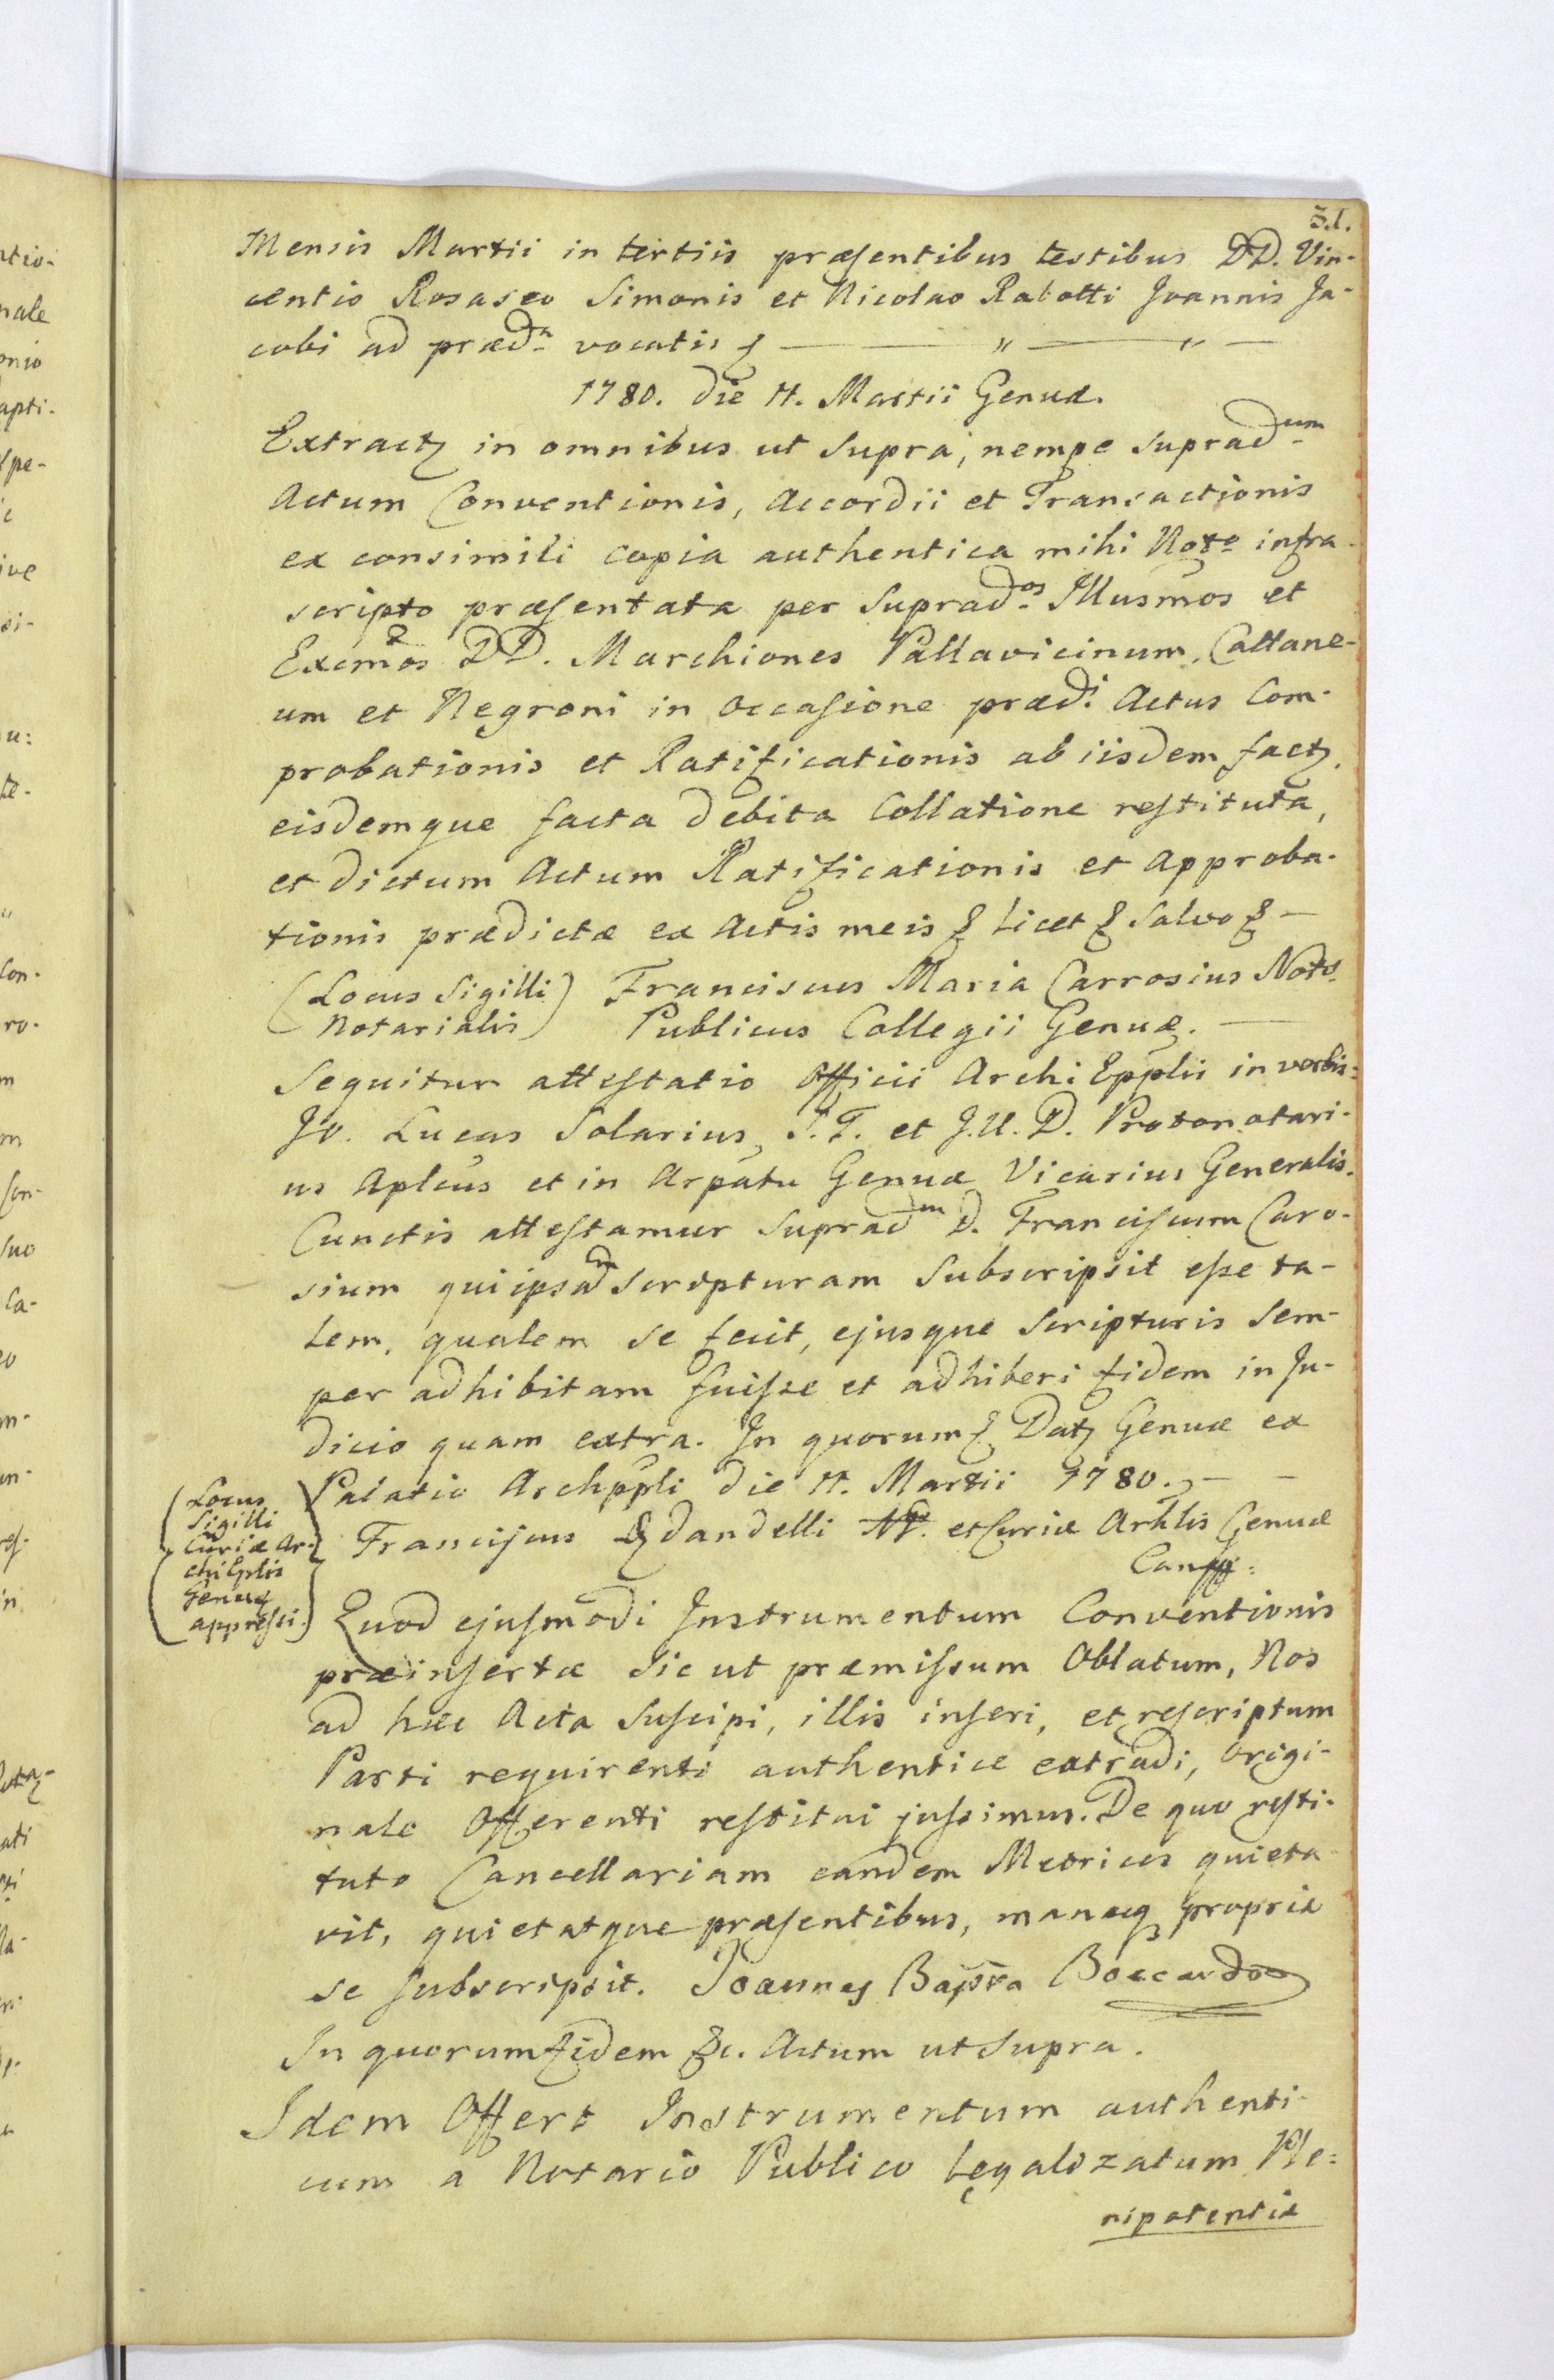 31.
Mensis Martii in tertiis præsentibus testibus DD. Vin-
centio Rosasco Simonis et Nicolao Rabotti Joannis Ja-
cobi ad præd.a vocatis
1780. die 11. Martii Genuæ.
Extract in omnibus ut supra, nempe suprad.um
Actum Conventionis, Accordii et Transactionis
ex consimili copia authentica mihi Noto infra-
scripto præsentata per suprad.os Illusmos et
Excmos DD. Marchiones Pallavicinum, Cattane-
um et Negroni in occasione præd.i Actus Com-
probationis et Ratificationis ab iisdem fact,
eisdemque facta debita Collatione restituta,
et dictum Actum Ratificationis et Approba-
tionis prædictæ ex Actis meis & licet & salvo & —
(Locus Sigilli) Franciscus Maria Carrosius Nots
Notarialis) Publicus Collegii Genuæ. —
Sequitur attestatio Officii Archi Epplis in verbis:
Jo. Lucas Solarius, S.T. et J.U.D. Protonotari-
us Aplcus et in Arpatu Genuæ Vicarius Generalis.
Cunctis attestamur suprad.m D. Franciscum Caro-
sium qui ipsam scripturam subscripsit esse ta-
lem, qualem se fecit, ejusque scripturis sem-
per adhibitam fuisse et adhiberi fidem in Ju-
dicio quam extra. In quorum & Dat Genuæ ex
Palatio Archppli die 11. Martii 1780. — —
(Locus
Sigilli
Curiæ Ar-
chiEplis
Genuæ
appressi.)
Franciscus dandelli et Curiæ Arhlis Genuæ
Canc:
Quod ejusmodi Instrumentum Conventionis
præinsertæ sic ut præmissum Oblatum, Nos
ad hæc Acta suscipi, illis inseri, et rescriptum
Parti requirenti authentice extradi, Origi-
nale Offerenti restitui jussimus. De quo resti-
tuto Cancellariam eandem Metrices quieta-
vit, quietatque præsentibus, manuq propria
se subscripsit. Joannes Bapta Boccardo
In quorum fidem &c. Actum ut supra.
Idem Offert Instrumentum authenti-
cum a Notario Publico Legalizatum Ple-
nipotentiæ